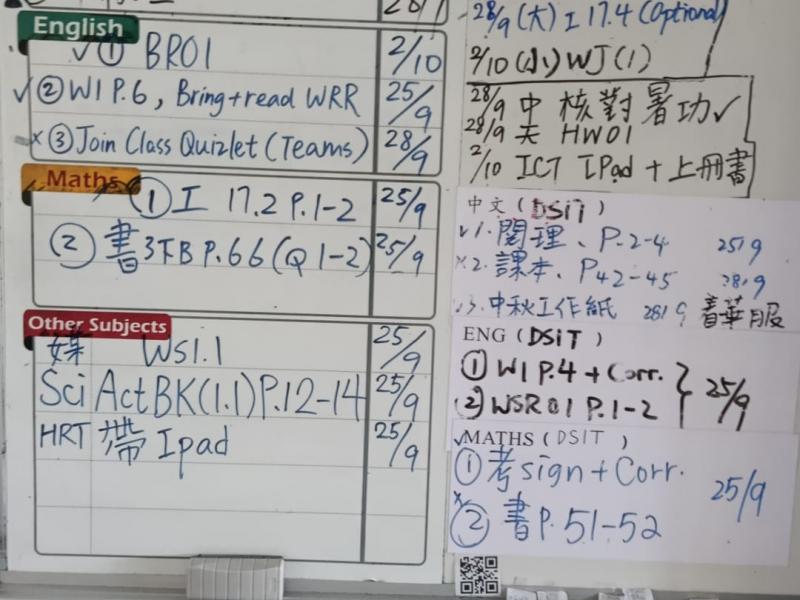 English
✓ ① BR01 2/10
✓ ② W1 P.6, Bring+read WRR 25/9
× ③ Join Class Quizlet (Teams) 28/9
Maths
① I 17.2 P.1-2 25/9
② 書3下B P.66 (Q1-2) 25/9
Other Subjects
媒 WS1.1 25/9
Sci ActBK(1.1) P.12-14 25/9
HRT 帶 Ipad 25/9
28/9 (大) I 17.4 (Optional)
2/10 (小) WJ(1)
28/9 中 核對暑功✓
28/9 天 HW01
2/10 ICT IPad + 上冊書
中文 (DSIT)
✓1. 閱理、P.2-4 25/9
×2. 課本、P42-45 28/9
✓3. 中秋工作紙 28/9 着華服
ENG (DSIT)
① W1 P.4 + Corr.
② WSR01 P.1-2 } 25/9
✓MATHS (DSIT)
① 考sign + Corr. 25/9
× ② 書P.51-52